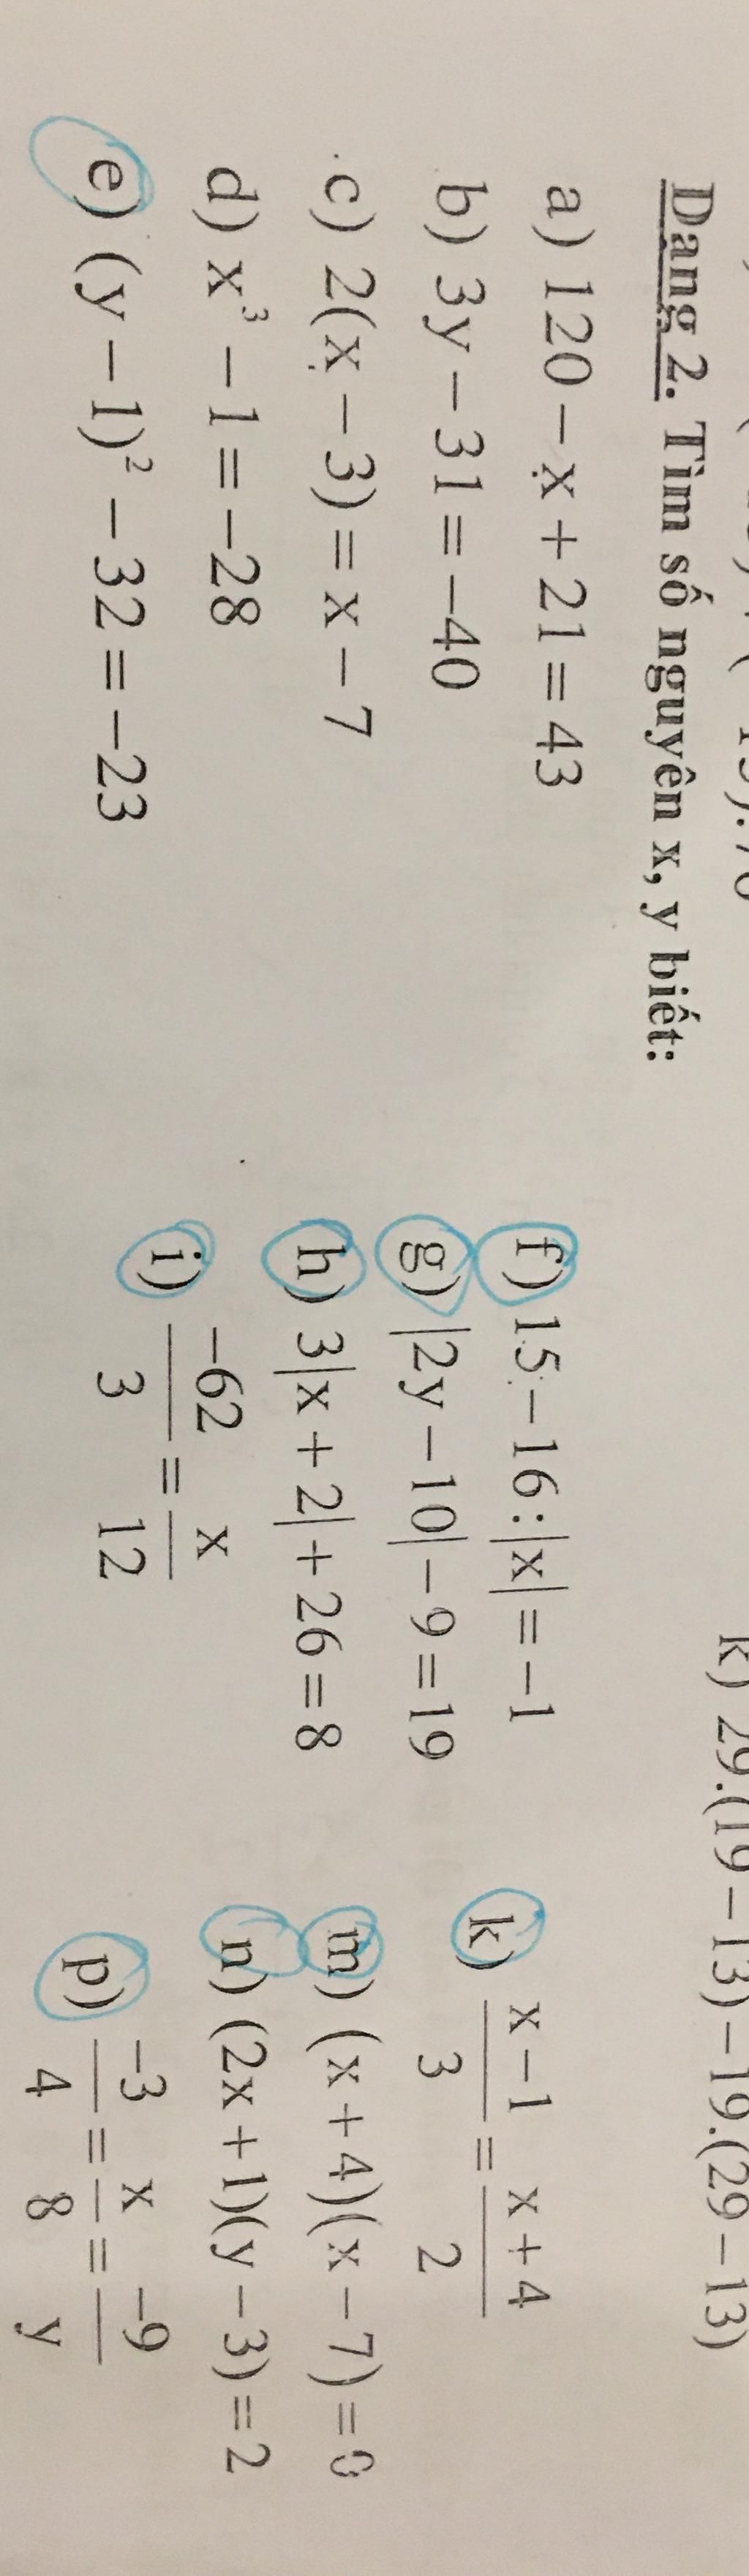 k) 29.(19 – 13) – 19.(29 – 13)
Dạng 2. Tìm số nguyên x, y biết:
a) 120 – x + 21 = 43
b) 3y – 31 = –40
c) 2(x – 3) = x – 7
d) x³ – 1 = –28
e) (y – 1)² – 32 = –23
f) 15 – 16 : |x| = –1
g) |2y – 10| – 9 = 19
h) 3|x + 2| + 26 = 8
i) –62/3 = x/12
k) x – 1/3 = x + 4/2
m) (x + 4)(x – 7) = 0
n) (2x + 1)(y – 3) = 2
p) –3/4 = x/8 = –9/y